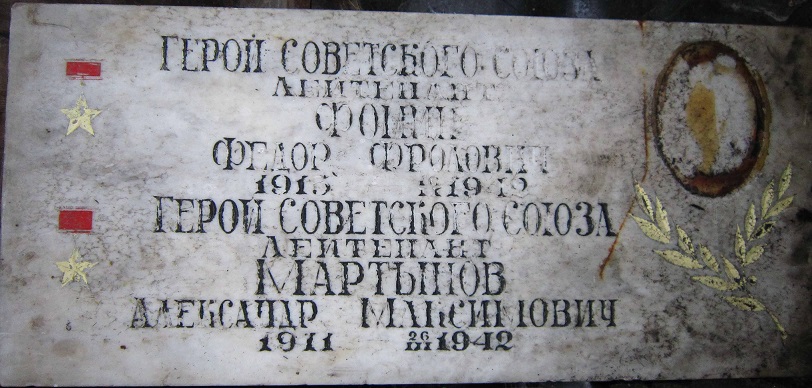 ГЕРОЙ СОВЕТСКОГО СОЮЗА
ЛЕЙТЕНАНТ
ФОМИН
ФЕДОР ФРОЛОВИЧ
1915 1942
ГЕРОЙ СОВЕТСКОГО СОЮЗА
ЛЕЙТЕНАНТ
МАРТЫНОВ
АЛЕКСАНДР МАКСИМОВИЧ
1911 26/III 1942